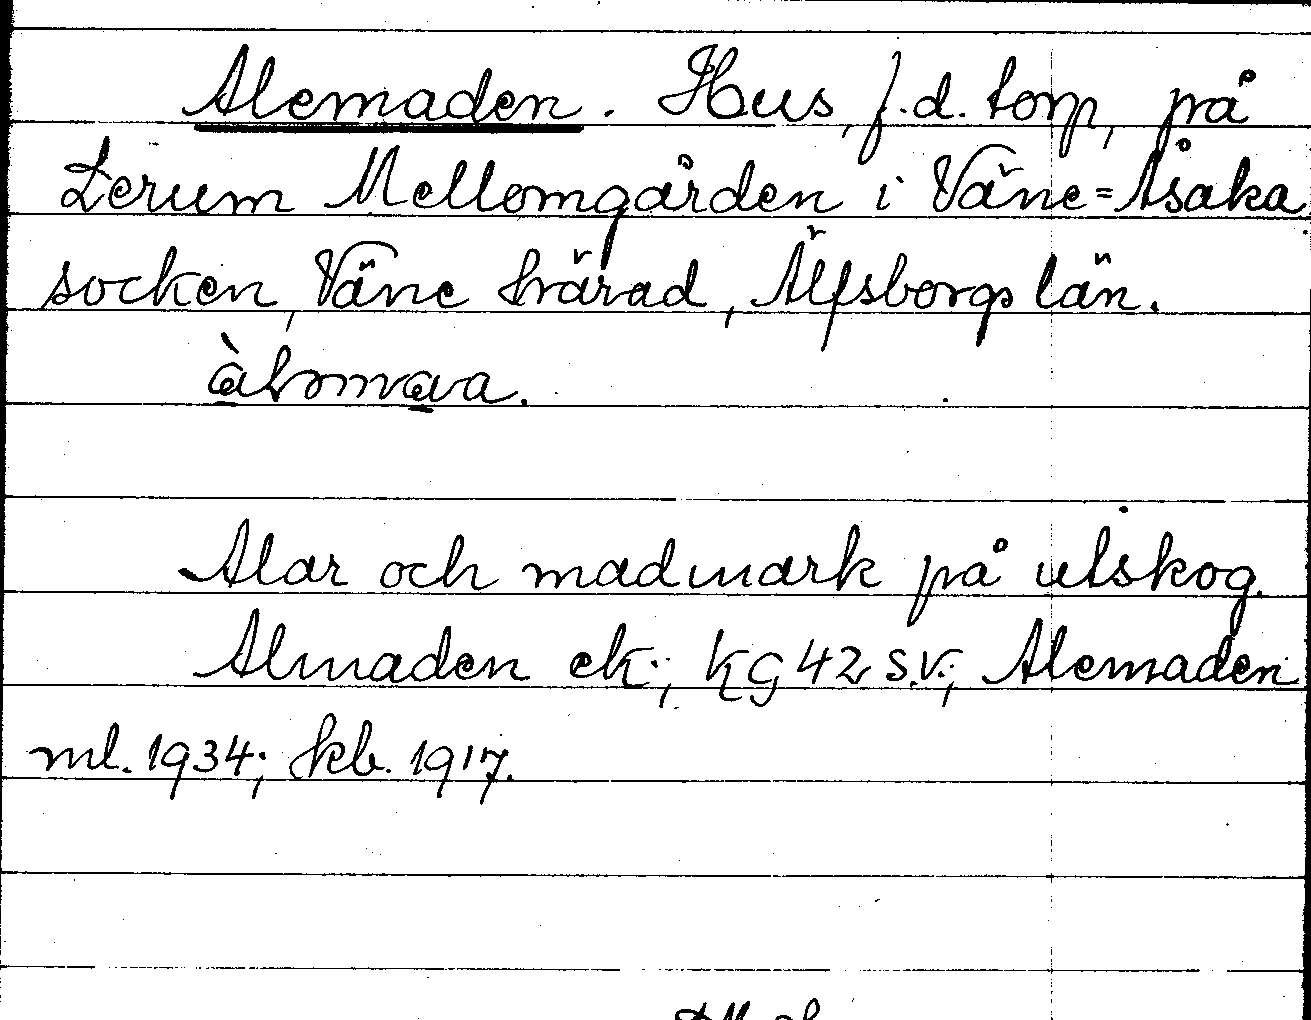 Alemaden. Hus, f.d. torp, på
Lerum Mellomgården i Väne=Åsaka
socken, Väne härad, Älfsborgs län.
Alar och madmark på utskog.
Almaden ek.; kg 42 s.v.; Alemaden
ml. 1934; hkb. 1917.